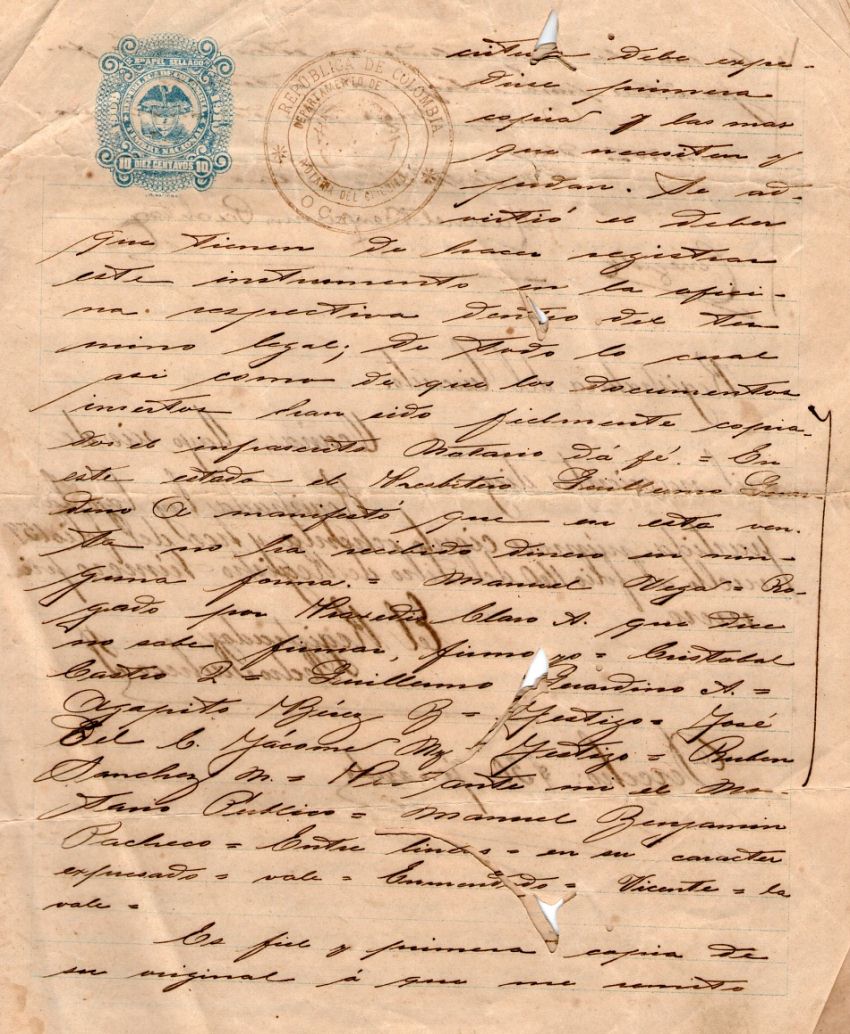 PAPEL SELLADO
DIEZ CENTAVOS
10 10
REPÚBLICA DE COLOMBIA
DEPARTAMENTO DE
NOTARÍA DEL CIRCUITO
OCAÑA
debe expe-
dirse primera
copia y las mas
que necesiten y
pidan. Se ad-
virtió el deber
que tienen de hacer registrar
este instrumento en la ofici-
na respectiva dentro del tér
mino legal; de todo lo cual
asi como de que los documentos
insertos han sido fielmente copia-
dos el infrascrito Notario dá fé. = En
este estado el Presbítero Guillermo Guar
dino A manifestó que en esta ven-
ta no ha recibido dinero en nin-
guna forma. = Manuel Vega = Ro-
gado por Claro A. que dice
no sabe firmar, = Cristobal
Castro Q. Guillermo Guardino A. =
Agapito B = Testigo = José
del C. Jácome = Testigo = Ruben
Sanchez M. = Ante mi el No-
tario Público = Manuel Benjamin
Pacheco = Entre lineas = en su caracter
expresado = vale = Enmendado = Vicente = la
vale =
Es fiel y primera copia de
su original á que me remito